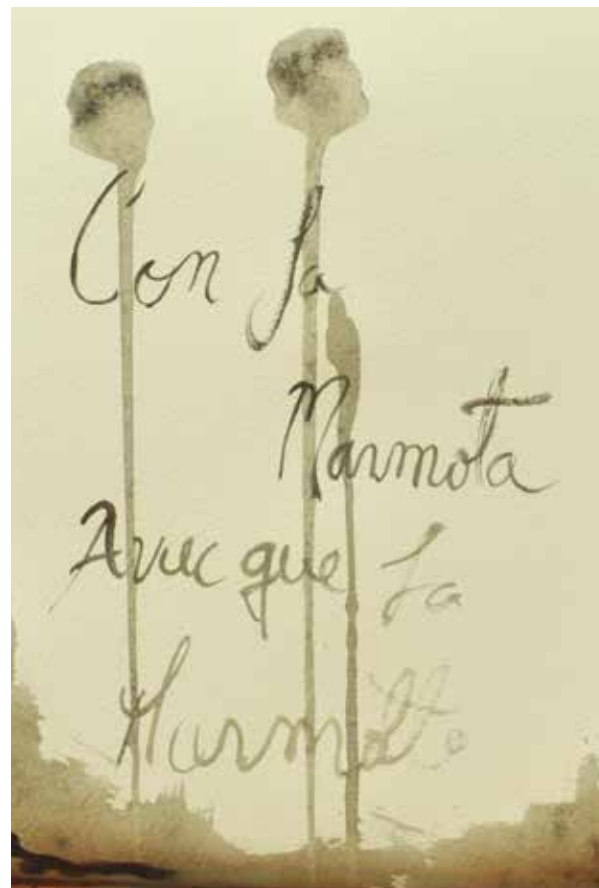 Con la
Marmota
Avec que la
Marmotte